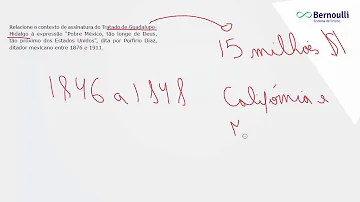 Bernoulli
Sistema de Ensino
Relacione o contexto de assinatura do Tratado de Guadalupe-
Hidalgo à expressão "Pobre México, tão longe de Deus,
tão próximo dos Estados Unidos", dita por Porfirio Díaz,
ditador mexicano entre 1876 e 1911.
15 milhões
1846 a 1848
Califórnia e